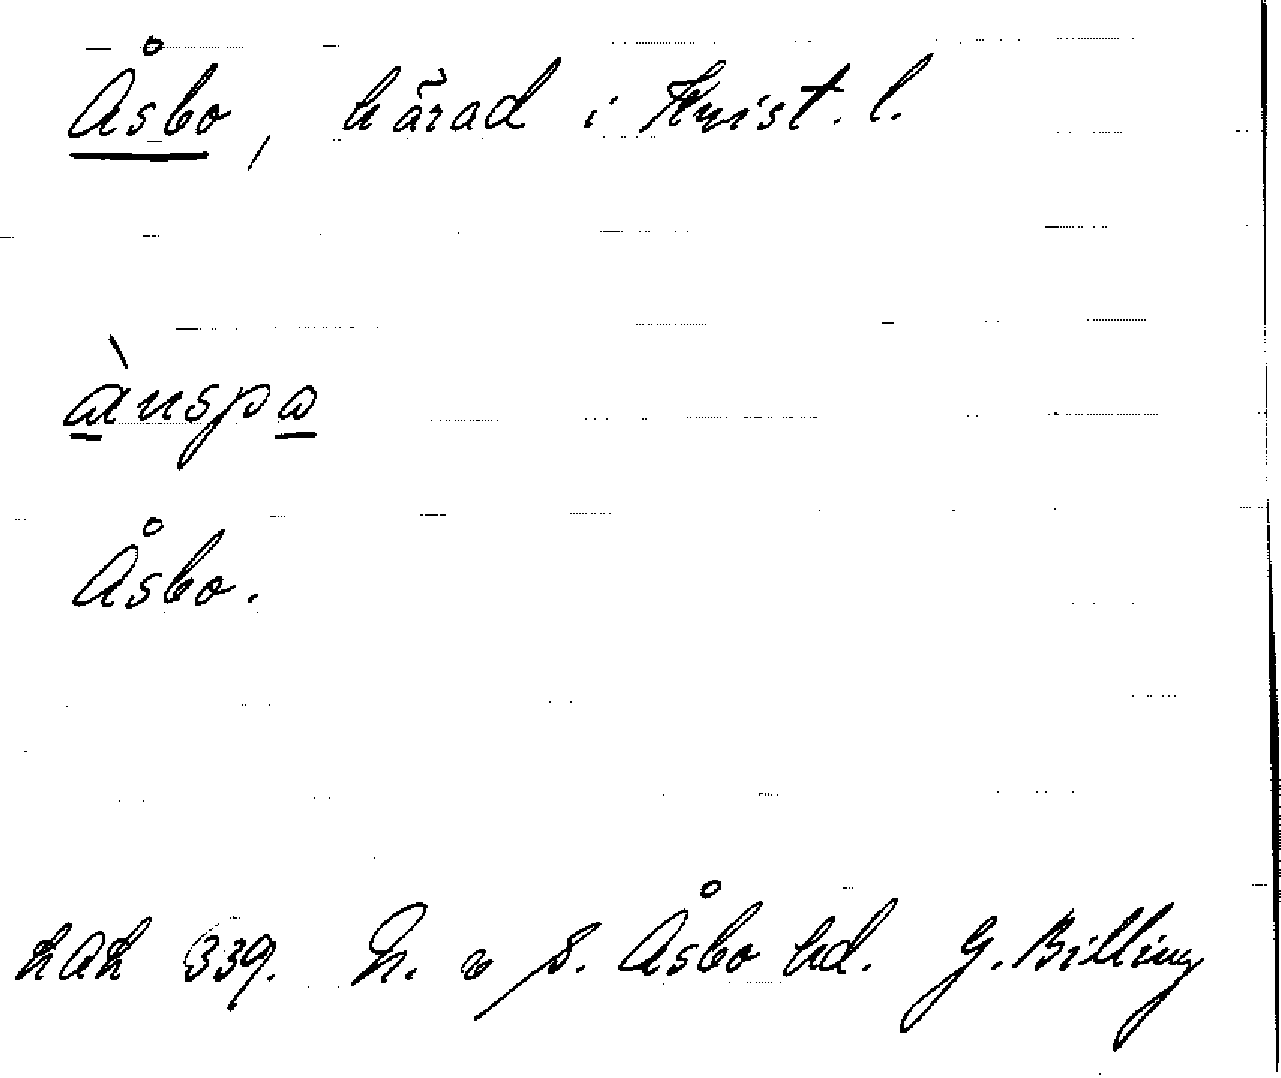 Åsbo, härad i Krist. l.
Åsbo.
LAL 339. N. o S. Åsbo hd. G. Billing